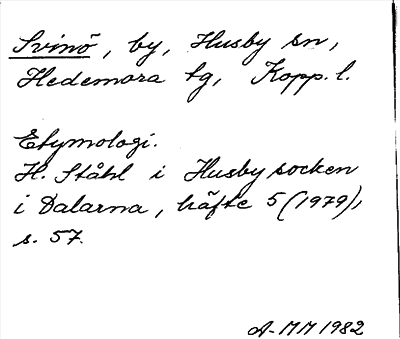 Svinö, by, Husby sn,
Hedemora tg, Kopp. l.
Etymologi.
H. Ståhl i Husby socken
i Dalarna, häfte 5 (1979),
s. 57.
A-MM 1982